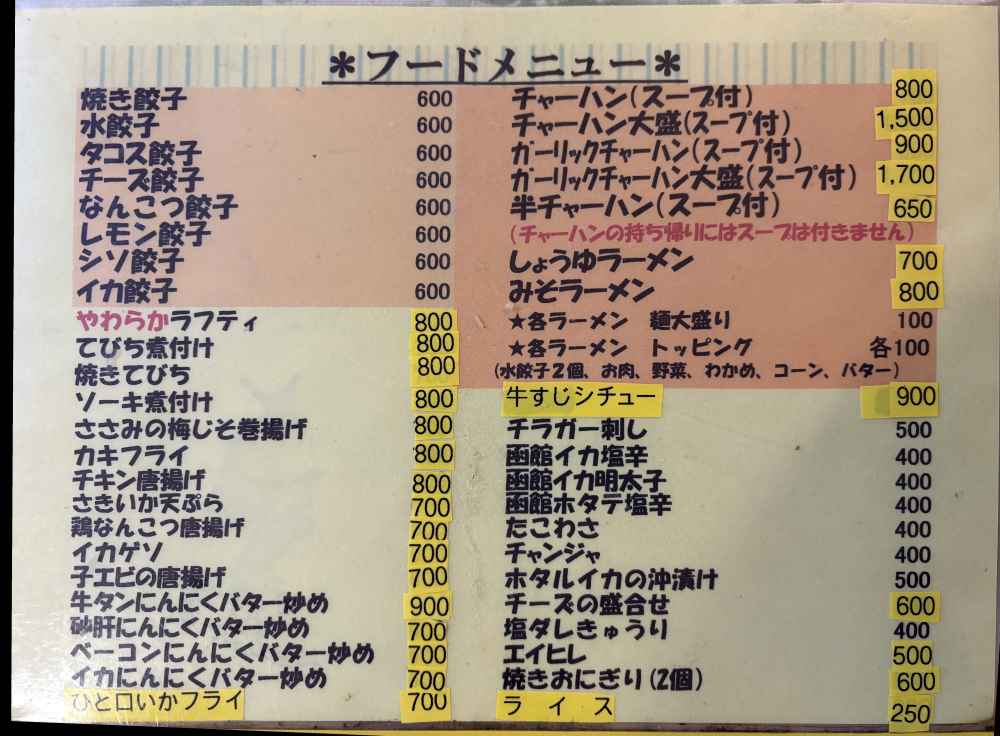 ＊フードメニュー＊
焼き餃子 600
水餃子 600
タコス餃子 600
チーズ餃子 600
なんこつ餃子 600
レモン餃子 600
シソ餃子 600
イカ餃子 600
やわらかラフティ 800
てびち煮付け 800
焼きてびち 800
ソーキ煮付け 800
ささみの梅じそ巻揚げ 800
カキフライ 800
チキン唐揚げ 800
さきいか天ぷら 700
鶏なんこつ唐揚げ 700
イカゲソ 700
子エビの唐揚げ 700
牛タンにんにくバター炒め 900
砂肝にんにくバター炒め 700
ベーコンにんにくバター炒め 700
イカにんにくバター炒め 700
ひと口いかフライ 700
チャーハン(スープ付) 800
チャーハン大盛(スープ付) 1,500
ガーリックチャーハン(スープ付) 900
ガーリックチャーハン大盛(スープ付) 1,700
半チャーハン(スープ付) 650
(チャーハンの持ち帰りにはスープは付きません)
しょうゆラーメン 700
みそラーメン 800
★各ラーメン 麺大盛り 100
★各ラーメン トッピング 各100
(水餃子2個、お肉、野菜、わかめ、コーン、バター)
牛すじシチュー 900
チラガー刺し 500
函館イカ塩辛 400
函館イカ明太子 400
函館ホタテ塩辛 400
たこわさ 400
チャンジャ 400
ホタルイカの沖漬け 500
チーズの盛合せ 600
塩ダレきゅうり 400
エイヒレ 500
焼きおにぎり(2個) 600
ライス 250